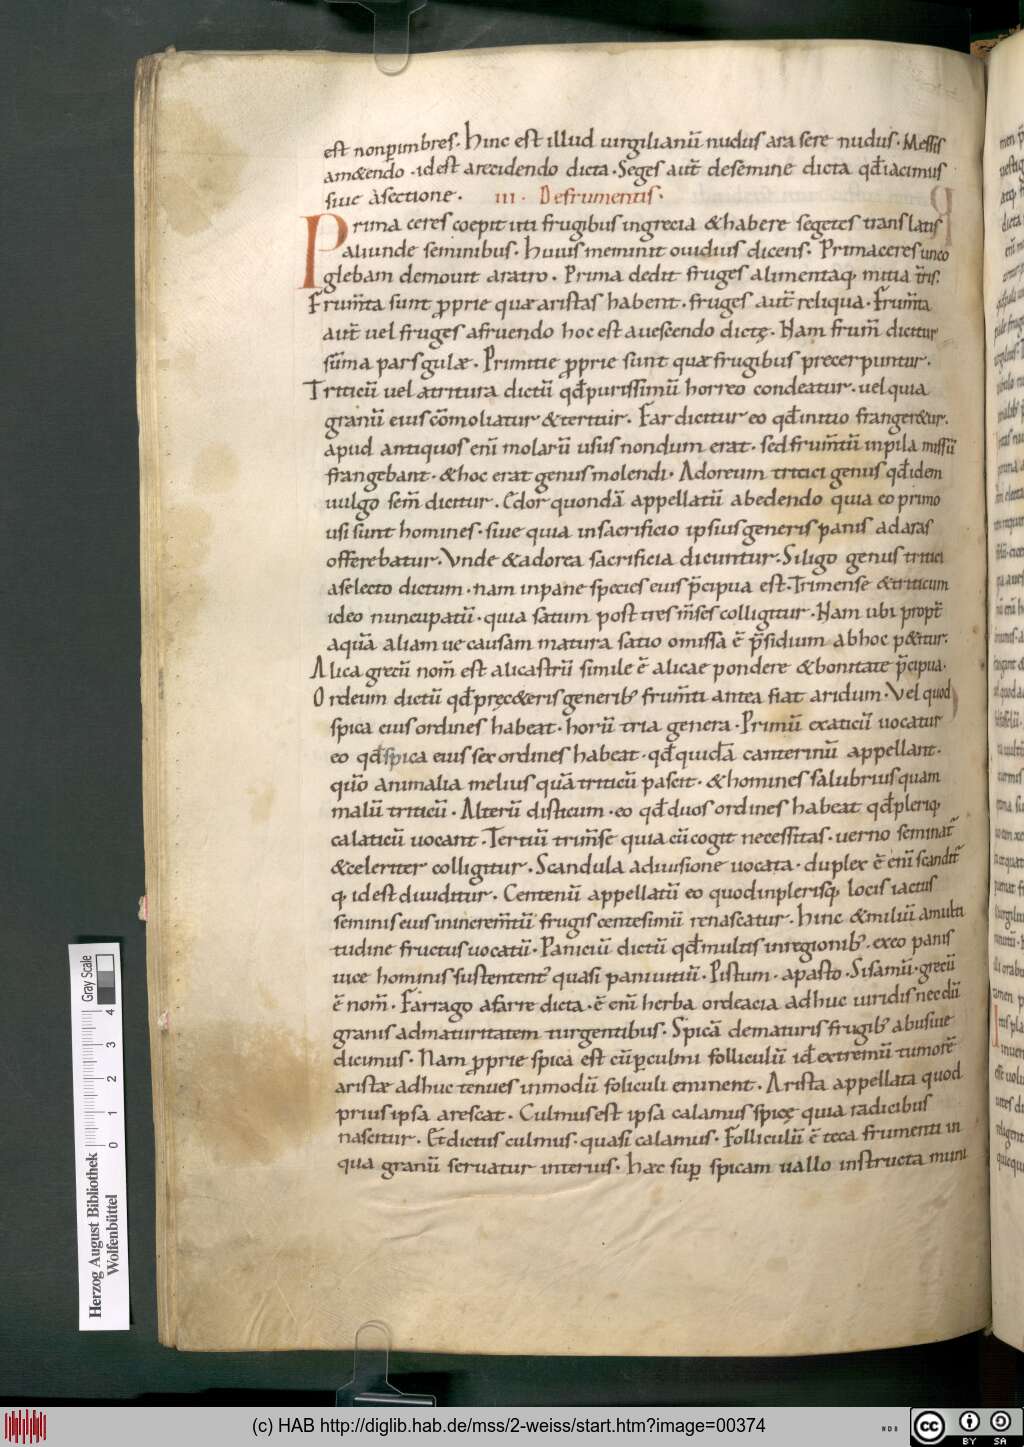 est nonp̲imbres. hinc est illud uirgilianū nudus ara sere nudus. Messis
am&endo. idest arecidendo dicta. Seges aut̄ desemine dicta qđ iacimus
siue àsectione. III. Defrumentis.
Prima ceres coepit uti frugibus ingrecia &habere segetes translatis
aliunde seminibus. huius meminit ouidius dicens. Prima ceres unco
glebam demouit aratro. Prima dedit fruges alimentaq. mitia t̄ris.
Frum̄ta sunt ꝓprie quæ aristas habent. fruges aut̄ reliqua. Frum̄ta
aut̄ uel fruges afruendo hoc est auescendo dictę. Nam frum̄ dicitur
sūma pars gulæ. Primitie ꝓprie sunt quæ frugibus precerpuntur.
Triticū uel atritura dictū qđ purissimū horreo condeatur. uel quia
granū eius cōmoliatur &teritur. Far dicitur eo qđ initio franger&ur.
apud antiquos enī molarū usus nondum erat. sed frum̄tū inpila missū
frangebant. &hoc erat genus molendi. Adoreum tritici genus qđ idem
uulgo sem̄ dicitur. Edor quondā appellatū abedendo quia eo primo
usi sunt homines. siue quia insacrificio ipsius generis panis ad aras
offerebatur. Vnde &adorea sacrificia dicuntur. Siligo genus tritici
aselecto dictum. nam inpane species eius p̄cipua est. Trimense &triticum
ideo nuncupatū. quia satum post tres m̄ses colligitur. Nam ubi propt̄
aquā aliam ue causam matura satio omissa ē p̄sidium abhoc p&itur.
Alica grecū nom̄ est alicastrū simile ē alicae pondere &bonitate p̄cipua.
Ordeum dictū qđ pręc&eris generibꝰ frum̄ti antea fiat aridum. Vel quod
spica eius ordines habeat. horū tria genera. Primū exaticū uocatur
eo qđ spica eius sex ordines habeat. qđ quidā canterinū appellant.
qūo animalia melius quā triticū pascit. &homines salubrius quam
malū triticū. Alterū disticum. eo qđ duos ordines habeat qđ pleriq.
calaticū uocant. Tertiū trim̄se quia cū cogit necessitas. uerno seminat̄
&celeriter colligitur. Scandula adiuisione uocata. duplex ē enī scandit̄
q. idest diuiditur. Centenū appellatū eo quod inplerisq. locis iactus
seminis eius inincrem̄tū frugis centesimū renascatur. hinc &miliū amulti
tudine fructus uocatū. Paniciū dictū qđ multis inregionibꝰ. exeo panis
uice hominis sustentent̄ quasi paniuitiū. Pistum. apasto. Sisamū. grecū
ē nom̄. Farrago afarre dicta. ē enī herba ordeacia adhuc uiridis necdū
granis admaturitatem turgentibus. Spicā dematuris frugibꝰ abusiue
dicimus. Nam ꝓprie spica est cū ꝑculmi folliculū idē extremū tumorē
aristæ adhuc tenues inmodū foliculi eminent. Arista appellata quod
prius ipsa arescat. Culmus est ipsa calamus spicę quia radicibus
nascitur. Et dictus culmus. quasi calamus. Folliculū ē teca frumenti in
qua granū seruatur interius. hæc suꝑ spicam uallo instructa muni
Herzog August Bibliothek
Wolfenbüttel
0 1 2 3 4
Gray Scale
(c) HAB http://diglib.hab.de/mss/2-weiss/start.htm?image=00374
cc BY SA